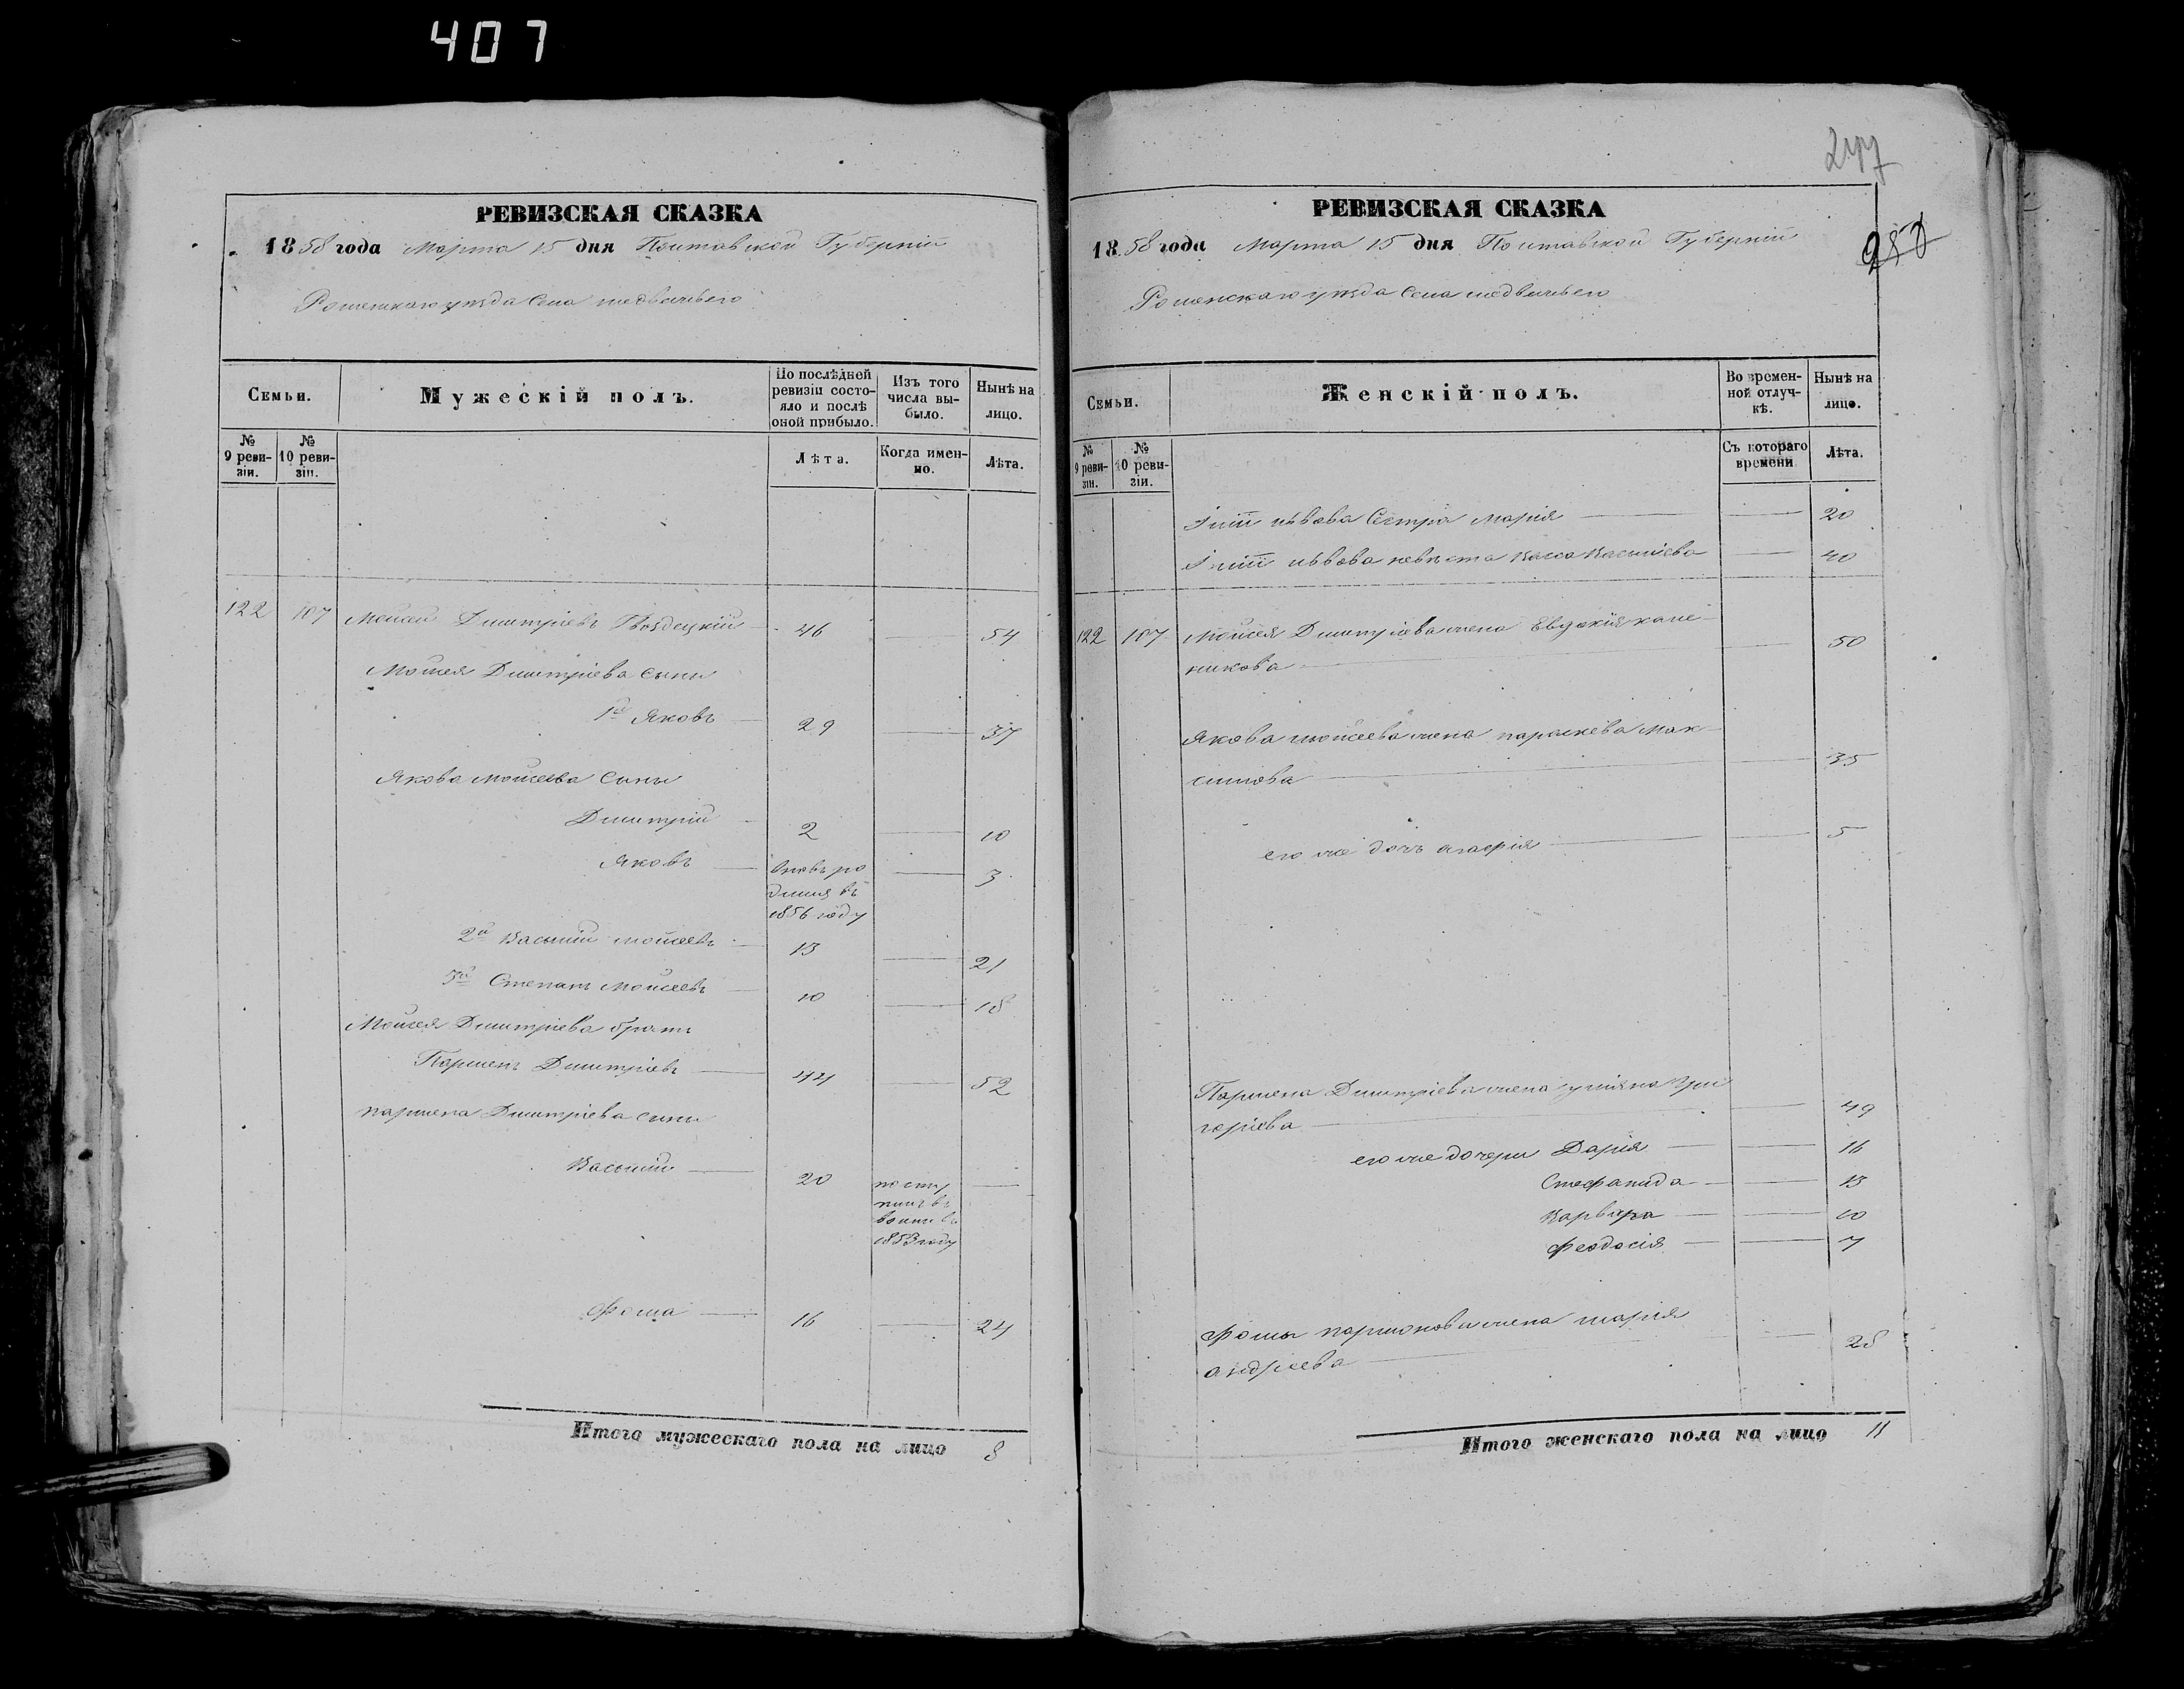 407
277
250
РЕВИЗСКАЯ СКАЗКА
1858 года Марта 15 дня Полтавской Губерніи
Роменскаго уѣзда Села медвежьего
Семьи.
Мужескій полъ.
По послѣдней ревизіи состояло и послѣ оной прибыло.
Изъ того числа выбыло.
Нынѣ на лицо.
№ 9 ревизіи.
№ 10 ревизіи.
Лѣта.
Когда именно.
Лѣта.
122 107 Мойсей Дмитріевъ Гвоздецкій 46 54
Мойсея Дмитріева сыны
1й Яковъ 29 37
Якова Мойсеева Сыны
Дмитрій 2 10
Яковъ вновь ро 3
дился въ
1856 году
2й Василій мойсеевъ 13 21
3й Степанъ Мойсеевъ 10 18
Мойсея Дмитріева братъ
Парменъ Дмитріевъ 44 52
пармена Дмитріева сыны
Василій 20 посту
пилъ въ
1853 году
Фома 16 24
Итого мужескаго пола на лицо 8
РЕВИЗСКАЯ СКАЗКА
1858 года Марта 15 дня Полтавской Губерніи
Роменскаго уѣзда Села медвежьего
Семьи.
Женскій полъ.
Во временной отлучкѣ.
Нынѣ на лицо.
№ 9 ревизіи.
№ 10 ревизіи.
Съ котораго времени
Лѣта.
львова Сестра Марія 20
львова невѣста Васса Васильева 40
122 107 Мойсея Дмитріева жена Евдокія кале
никова 50
Якова мойсеева жена параскева Мак
симова 35
его же дочь агафія 5
Пармена Дмитріева жена уліяна Гри
горіева 49
его же дочери Дарія 16
Стефанида 13
Варвара 10
Феодосія 7
Фомы парменова жена марія
андреева 28
Итого женскаго пола на лицо 11